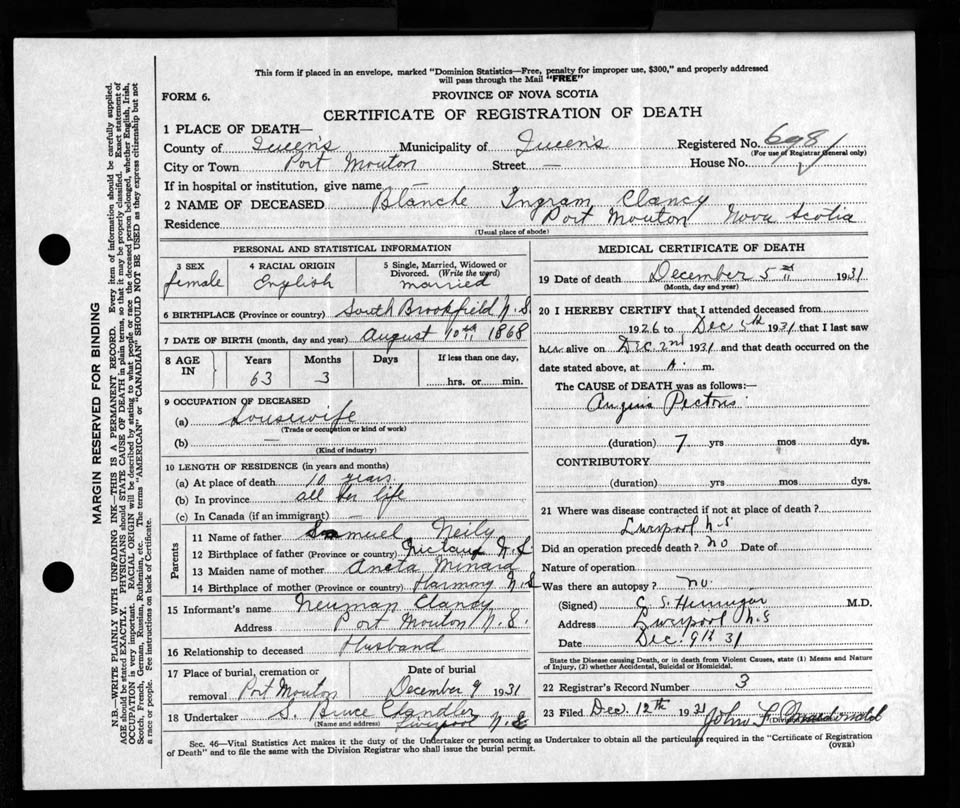 This form if placed in an envelope, marked "Dominion Statistics—Free, penalty for improper use, $300," and properly addressed
will pass through the Mail "FREE"
FORM 6.
PROVINCE OF NOVA SCOTIA
CERTIFICATE OF REGISTRATION OF DEATH
1 PLACE OF DEATH—
County of Queen's Municipality of Queen's Registered No.
(For use of Registrar General only)
City or Town Port Mouton Street — House No.
If in hospital or institution, give name —
2 NAME OF DECEASED Blanche Ingram Clancy
Residence Port Mouton Nova Scotia
(Usual place of abode)
PERSONAL AND STATISTICAL INFORMATION
3 SEX female
4 RACIAL ORIGIN English
5 Single, Married, Widowed or
Divorced. (Write the word)
married
6 BIRTHPLACE (Province or country) South Brookfield N.S.
7 DATE OF BIRTH (month, day and year) August 10th 1868
8 AGE IN
Years Months Days If less than one day,
63 3 hrs. or min.
9 OCCUPATION OF DECEASED
(a) Housewife
(Trade or occupation or kind of work)
(b) —
(Kind of industry)
10 LENGTH OF RESIDENCE (in years and months)
(a) At place of death 10 years
(b) In province all her life
(c) In Canada (if an immigrant) —
Parents
11 Name of father Samuel Neily
12 Birthplace of father (Province or country) N.S
13 Maiden name of mother Minard
14 Birthplace of mother (Province or country) Harmony N.S
15 Informant's name Neuman Clancy
Address Port Mouton N.S.
16 Relationship to deceased Husband
17 Place of burial, cremation or Date of burial
removal Port Mouton December 9 1931
18 Undertaker S. Bruce Chandler
(Name and address) Liverpool N.S
MEDICAL CERTIFICATE OF DEATH
19 Date of death December 5 1931
(Month, day and year)
20 I HEREBY CERTIFY that I attended deceased from
1926 to Dec 5th 1931 that I last saw
her alive on Dec. 2nd 1931 and that death occurred on the
date stated above, at A. m.
The CAUSE of DEATH was as follows:—
Angina Pectoris
(duration) 7 yrs mos dys.
CONTRIBUTORY
(duration) yrs. mos. dys.
21 Where was disease contracted if not at place of death?
Liverpool N.S
Did an operation precede death? no Date of
Nature of operation
Was there an autopsy? no.
(Signed) M.D.
Address Liverpool N.S
Date Dec. 9th 31
State the Disease causing Death, or in death from Violent Causes, state (1) Means and Nature
of Injury, (2) whether Accidental, Suicidal or Homicidal.
22 Registrar's Record Number 3
23 Filed Dec. 12th 1931 John
Sec. 46—Vital Statistics Act makes it the duty of the Undertaker or person acting as Undertaker to obtain all the particulars required in the "Certificate of Registration
of Death" and to file the same with the Division Registrar who shall issue the burial permit.
(OVER)
MARGIN RESERVED FOR BINDING
N.B.—WRITE PLAINLY WITH UNFADING INK—THIS IS A PERMANENT RECORD. Every item of information should be carefully supplied.
AGE should be stated EXACTLY. PHYSICIANS should STATE CAUSE OF DEATH in plain terms, so that it may be properly classified. Exact statement of
OCCUPATION is very important. RACIAL ORIGIN will be described by stating to what people or race the deceased person belonged, whether English, Irish,
Scotch, French, German, Russian, Ruthenian, etc. The terms "AMERICAN" or "CANADIAN" SHOULD NOT BE USED as they express citizenship but not
a race or people. See instructions on back of Certificate.